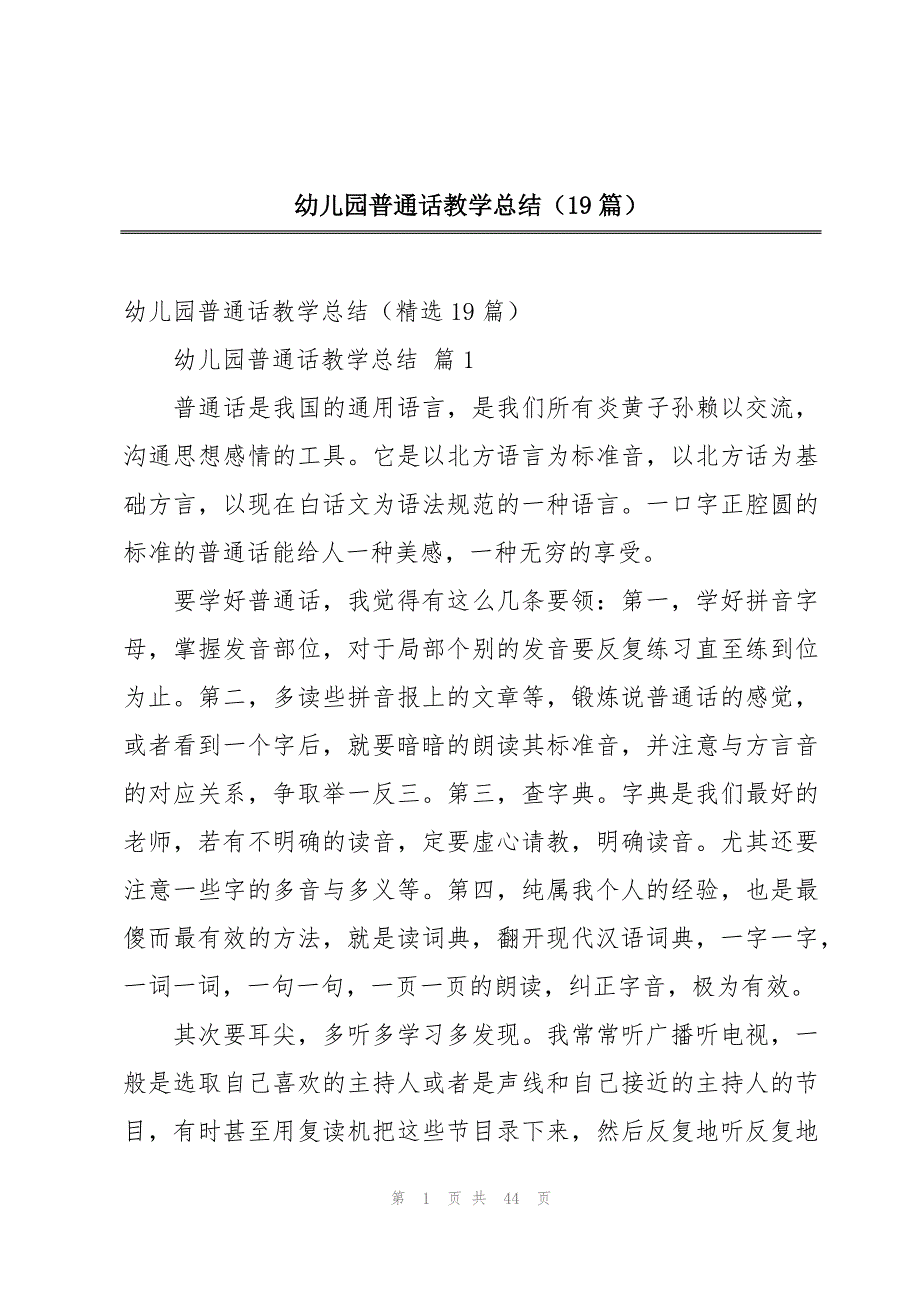 幼儿园普通话教学总结（19 篇）
幼儿园普通话教学总结（精选 19 篇）
幼儿园普通话教学总结 篇 1
普通话是我国的通用语言，是我们所有炎黄子孙赖以交流，
沟通思想感情的工具。它是以北方语言为标准音，以北方话为基
础方言，以现在白话文为语法规范的一种语言。一口字正腔圆的
标准的普通话能给人一种美感，一种无穷的享受。
要学好普通话，我觉得有这么几条要领：第一，学好拼音字
母，掌握发音部位，对于局部个别的发音要反复练习直至练到位
为止。第二，多读些拼音报上的文章等，锻炼说普通话的感觉，
或者看到一个字后，就要暗暗的朗读其标准音，并注意与方言音
的对应关系，争取举一反三。第三，查字典。字典是我们最好的
老师，若有不明确的读音，定要虚心请教，明确读音。尤其还要
注意一些字的多音与多义等。第四，纯属我个人的经验，也是最
傻而最有效的方法，就是读词典，翻开现代汉语词典，一字一字，
一词一词，一句一句，一页一页的朗读，纠正字音，极为有效。
其次要耳尖，多听多学习多发现。我常常听广播听电视，一
般是选取自己喜欢的主持人或者是声线和自己接近的主持人的节
目，有时甚至用复读机把这些节目录下来，然后反复地听反复地
第 1 页 共 44 页